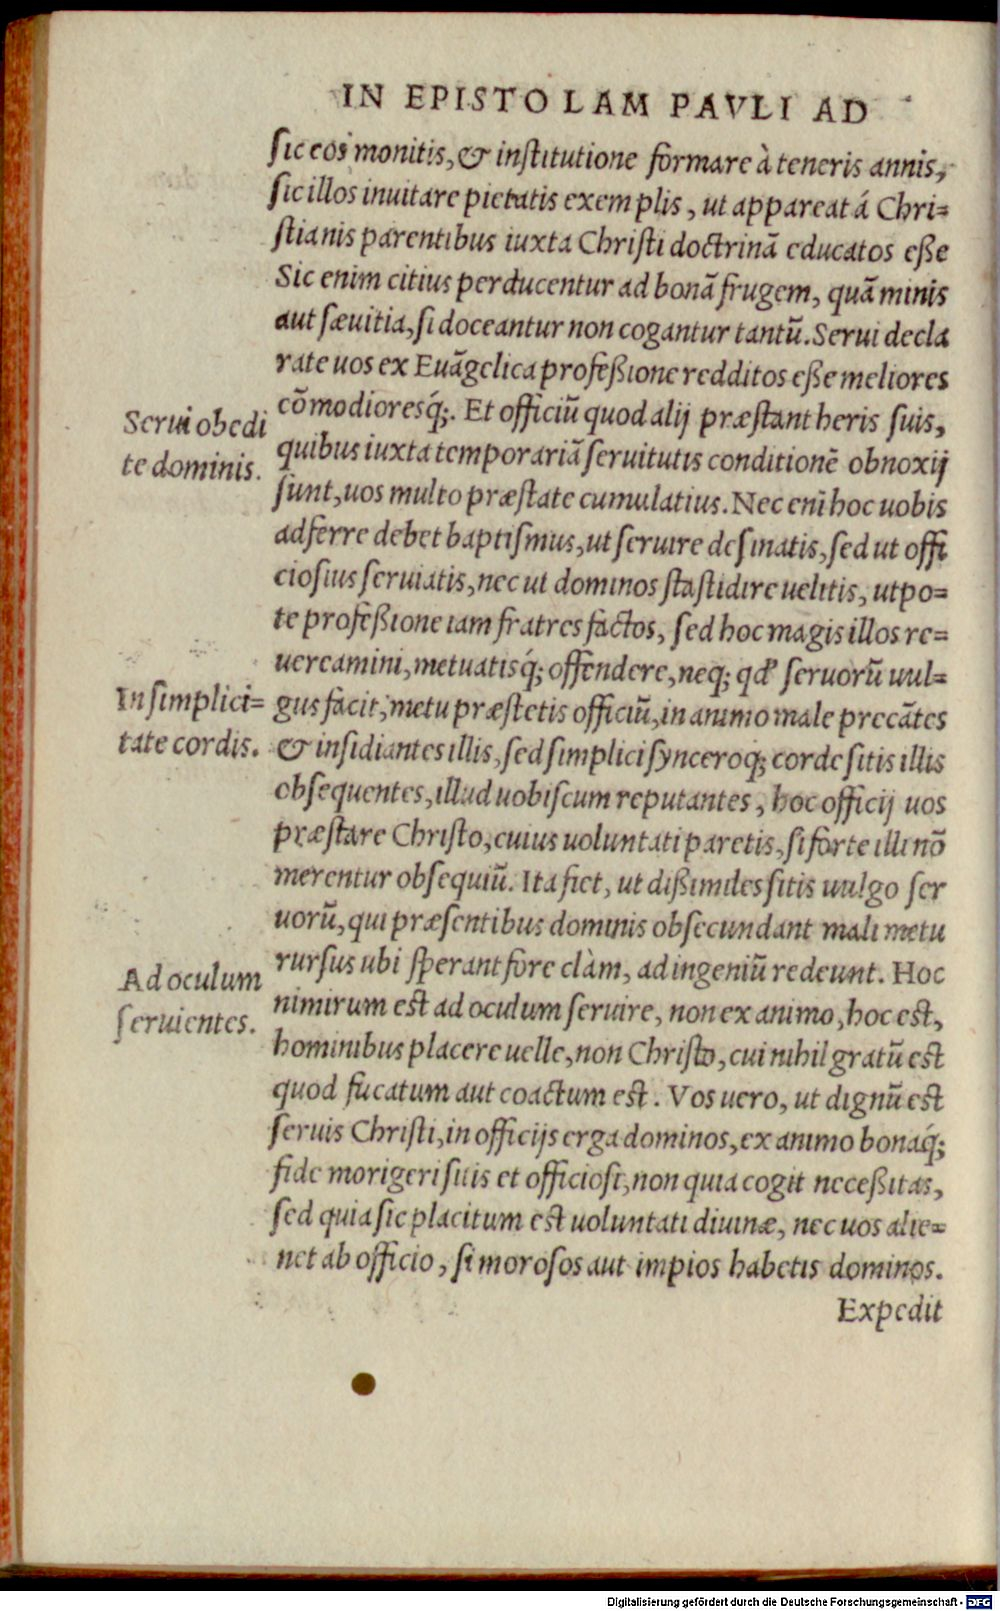 IN EPISTOLAM PAVLI AD
ſic eos monitis, & inſtitutione formare à teneris annis,
ſic illos inuitare pietatis exemplis, ut appareat á Chri=
ſtianis parentibus iuxta Chriſti doctrinā educatos eſſe
Sic enim citius perducentur ad bonā frugem, quā minis
aut ſæuitia, ſi doceantur non cogantur tantū. Serui decla
rate uos ex Euāgelica profeßione redditos eße meliores
cōmodioresq́;. Et officiū quod alij præſtant heris ſuis,
Serui obedi
te dominis.
quibus iuxta temporariā ſeruitutis conditionē obnoxij
ſunt, uos multo præſtate cumulatius. Nec enī hoc uobis
adferre debet baptiſmus, ut ſeruire deſinatis, ſed ut offi
cioſius ſeruiatis, nec ut dominos ſtaſtidire uelitis, utpo=
te profeßione iam fratres factos, ſed hoc magis illos re=
uereamini, metuatisq́; offendere, neq; qđ ſeruorū uul=
In ſimplici=
tate cordis.
gus facit, metu præſtetis officiū, in animo male precātes
& inſidiantes illis, ſed ſimplici ſynceroq; corde ſitis illis
obſequentes, illud uobiſcum reputantes, hoc officij uos
præſtare Chriſto, cuius uoluntati paretis, ſi forte illi nō
merentur obſequiū. Ita fiet, ut dißimiles ſitis uulgo ſer
uorū, qui præſentibus dominis obſecundant mali metu
Ad oculum
ſeruientes.
rurſus ubi ſperant fore clàm, ad ingeniū redeunt. Hoc
nimirum eſt ad oculum ſeruire, non ex animo, hoc eſt,
hominibus placere uelle, non Chriſto, cui nihil gratū eſt
quod fucatum aut coactum eſt. Vos uero, ut dignū eſt
ſeruis Chriſti, in officijs erga dominos, ex animo bonaq́;
fide morigeri ſitis et officioſi, non quia cogit neceßitas,
ſed quia ſic placitum eſt uoluntati diuinæ, nec uos alie=
net ab officio, ſi moroſos aut impios habetis dominos.
Expedit
Digitalisierung gefördert durch die Deutsche Forschungsgemeinschaft - DFG